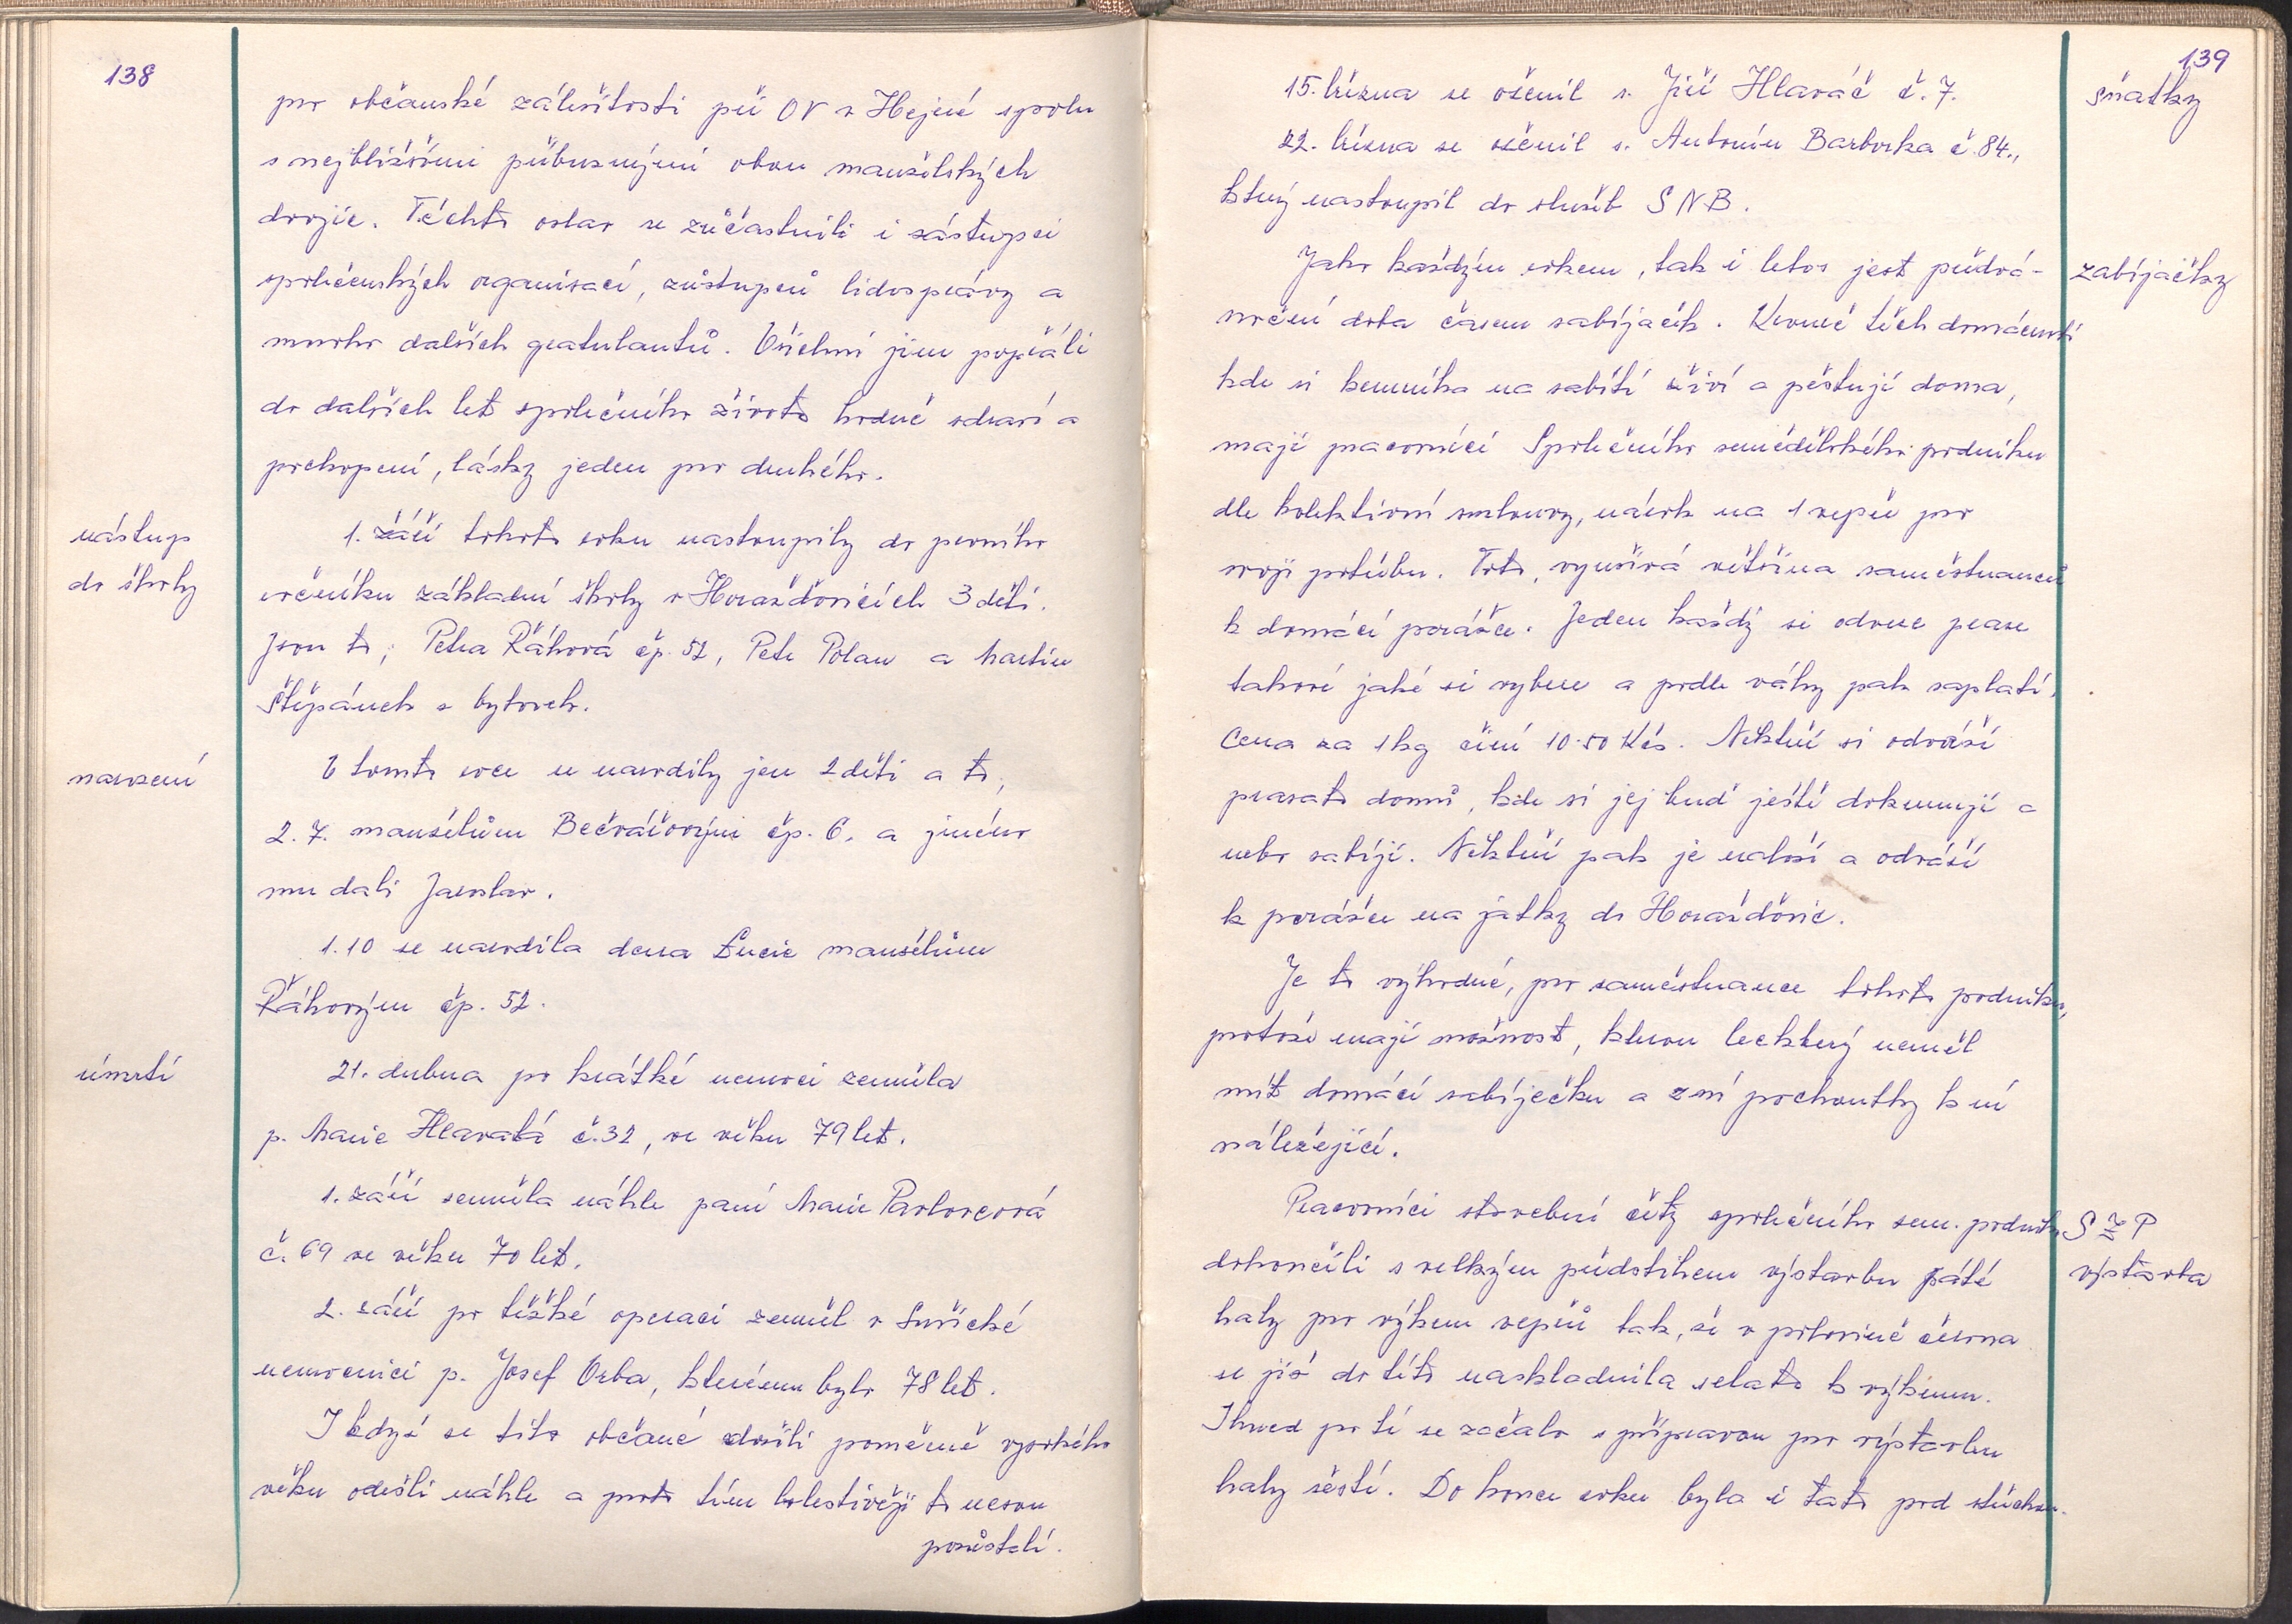 138
pro občanské záležitosti při OV v Hejné spolu
s nejbližšími příbuznými obou manželských
dvojic. Těchto oslav se zúčastnili i zástupci
společenských organisací, zástupců lidosprávy a
mnoho dalších gratulantů. Všichni jim popřáli
do dalších let společného života hodně zdraví a
pochopení, lásky jeden pro druhého.
nástup
do školy
1. září tohoto roku nastoupily do prvního
ročníku základní školy v Horažďovicích 3 děti.
Jsou to; Petra Ráhová čp. 52, Petr Polan a Martin
Štěpánek z bytovek.
narození
V tomto roce se narodily jen 2 děti a to,
2. 7. manželům Bečvářovými čp. 6. a jméno
mu dali Jaroslav.
1. 10 se narodila dcera Lucie manželům
Ráhovým čp. 52.
úmrtí
21. dubna po krátké nemoci zemřela
p. Marie Hlavatá č. 32, ve věku 79 let.
1. září zemřela náhle paní Marie Pavlovcová
č. 69 ve věku 70 let.
2. září po těžké operaci zemřel v Sušické
nemocnici p. Josef Vrba, kterému bylo 78 let.
I když se tito občané dožili poměrně vysokého
věku odešli náhle a proto tím bolestivěji to nesou
pozůstalí.
139
15. března se oženil s. Jiří Hlaváč č. 7.
sňatky
22. března se oženil s. Antonín Barborka č. 84.,
který nastoupil do služeb SNB.
Jako každým rokem, tak i letos jest předvá-
zabíjačky
noční doba časem zabíjaček. Kromě těch domácností
kde si krmníka na zabití živí a pěstují doma,
mají pracovníci Společného zemědělského podniku
dle kolektivní smlouvy, nárok na 1 vepře pro
svoji potřebu. Toto, využívá většina zaměstnanců
k domácí porážce. Jeden každý si odveze prase
takové jaké si vybere a podle váhy pak zaplatí.
Cena za 1 kg činí 10.50 Kčs. Někteří si odváží
prasata domů, kde si jej buď ještě dokrmují a
nebo zabíjí. Někteří pak je naloží a odváží
k porážce na jatky do Horažďovic.
Je to výhodné, pro zaměstnance tohoto podniku,
protože mají možnost, kterou leckterý neměl
mít domácí zabíječku a z ní pochoutky k ní
náležející.
Pracovníci stavební čety společného zem. podniku
SZP
výstavba
dokončili s velkým předstihem výstavbu páté
haly pro výkrm vepřů tak, že v polovině června
se již do této naskladnila selata k výkrmu.
Ihned po té se začalo s přípravou pro výstavbu
haly šesté. Do konce roku byla i tato pod střechou.